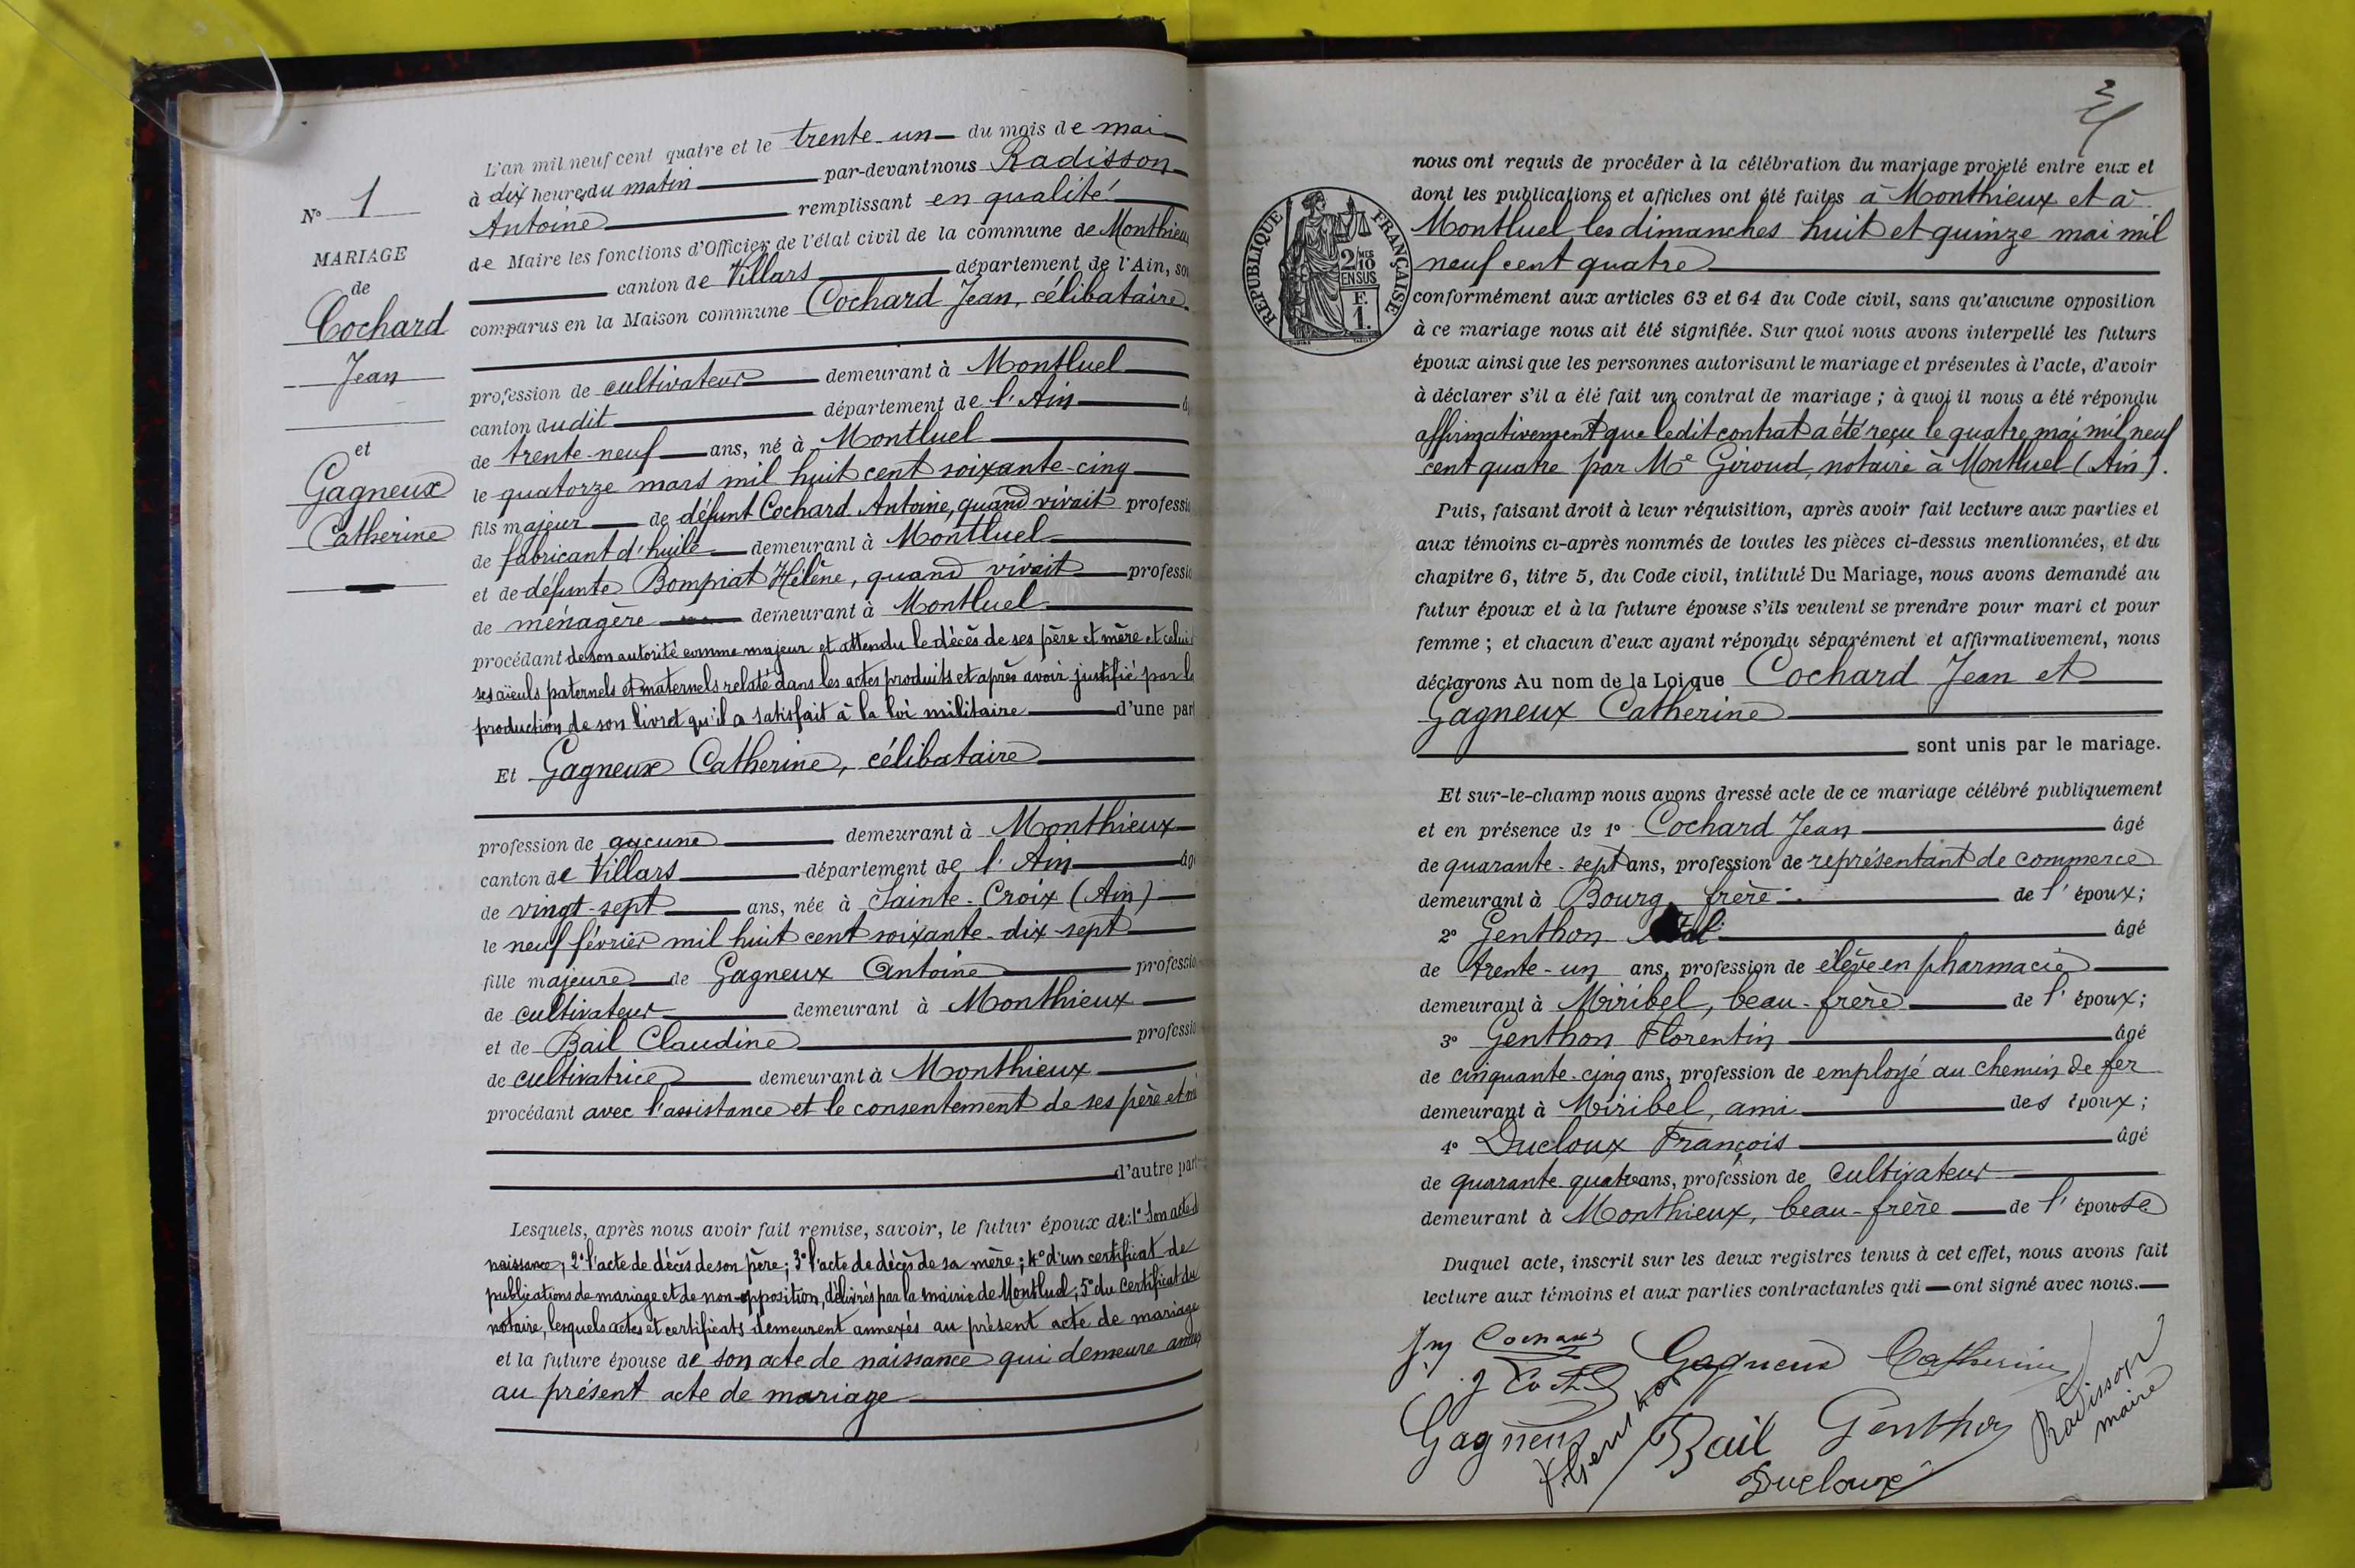 N° 1
MARIAGE
de
Cochard
Jean
et
Gagneux
Catherine
L'an mil neuf cent quatre et le trente-un du mois de mai
à dix heures du matin par-devant nous Radisson
Antoine remplissant en qualité
de Maire les fonctions d'Officier de l'état civil de la commune de Monthieux
canton de Villars département de l'Ain, so
comparus en la Maison commune Cochard Jean, célibataire
profession de cultivateur demeurant à Montluel
canton dudit département de l'Ain â
de trente-neuf ans, né à Montluel
le quatorze mars mil huit cent soixante-cinq
fils majeur de défunt Cochard Antoine, quand vivait professi
de fabricant d'huile demeurant à Montluel
et de défunte Bompiat Hélène, quand vivait professi
de ménagère demeurant à Montluel
procédant de son autorité comme majeur et attendu le décès de ses père et mère et celui
ses aïeuls paternels et maternels relaté dans les actes produits et après avoir justifié par la
production de son livret qu'il a satisfait à la loi militaire d'une part
Et Gagneux Catherine, célibataire
profession de aucune demeurant à Monthieux
canton de Villars département de l'Ain âg
de vingt-sept ans, née à Sainte-Croix (Ain)
le neuf février mil huit cent soixante-dix-sept
fille majeure de Gagneux Antoine professio
de cultivateur demeurant à Monthieux
et de Bail Claudine professio
de cultivatrice demeurant à Monthieux
procédant avec l'assistance et le consentement de ses père et m
d'autre part
Lesquels, après nous avoir fait remise, savoir, le futur époux de: 1° Son acte d
naissance; 2° l'acte de décès de son père; 3° l'acte de décès de sa mère; 4° d'un certificat de
publications de mariage et de non-opposition, délivrés par la mairie de Montluel; 5° du certificat du
notaire, lesquels actes et certificats demeurent annexés au présent acte de mariage
et la future épouse de son acte de naissance qui demeure annexé
au présent acte de mariage
2
nous ont requis de procéder à la célébration du mariage projeté entre eux et
dont les publications et affiches ont été faites à Monthieux et à
Montluel les dimanches huit et quinze mai mil
neuf cent quatre
RÉPUBLIQUE FRANÇAISE
2 MES 10 EN SUS
F. 1.
conformément aux articles 63 et 64 du Code civil, sans qu'aucune opposition
à ce mariage nous ait été signifiée. Sur quoi nous avons interpellé les futurs
époux ainsi que les personnes autorisant le mariage et présentes à l'acte, d'avoir
à déclarer s'il a été fait un contrat de mariage ; à quoi il nous a été répondu
affirmativement que ledit contrat a été reçu le quatre mai mil neuf
cent quatre par Me Giroud, notaire à Montluel (Ain).
Puis, faisant droit à leur réquisition, après avoir fait lecture aux parties et
aux témoins ci-après nommés de toutes les pièces ci-dessus mentionnées, et du
chapitre 6, titre 5, du Code civil, intitulé Du Mariage, nous avons demandé au
futur époux et à la future épouse s'ils veulent se prendre pour mari et pour
femme ; et chacun d'eux ayant répondu séparément et affirmativement, nous
déclarons Au nom de la Loi que Cochard Jean et
Gagneux Catherine
sont unis par le mariage.
Et sur-le-champ nous avons dressé acte de ce mariage célébré publiquement
et en présence de 1° Cochard Jean âgé
de quarante-sept ans, profession de représentant de commerce
demeurant à Bourg, frère de l'époux;
2° Genthon âgé
de trente-un ans, profession de élève en pharmacie
demeurant à Miribel, beau-frère de l'époux;
3° Genthon Florentin âgé
de cinquante-cinq ans, profession de employé au chemin de fer
demeurant à Miribel, ami des époux;
4° Ducloux François âgé
de quarante-quatre ans, profession de cultivateur
demeurant à Monthieux, beau-frère de l'épouse
Duquel acte, inscrit sur les deux registres tenus à cet effet, nous avons fait
lecture aux témoins et aux parties contractantes qui ont signé avec nous.
Gagneux Catherine
Gagneux
Bail Genthon
Radisson
maire
Ducloux